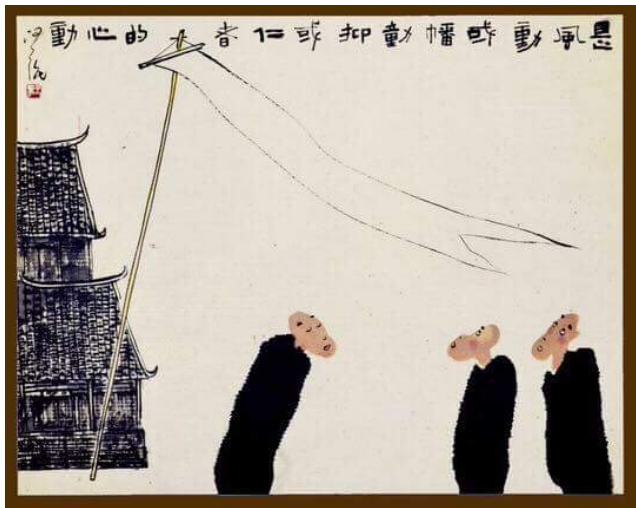 是風動或幡動抑或仁者的心動